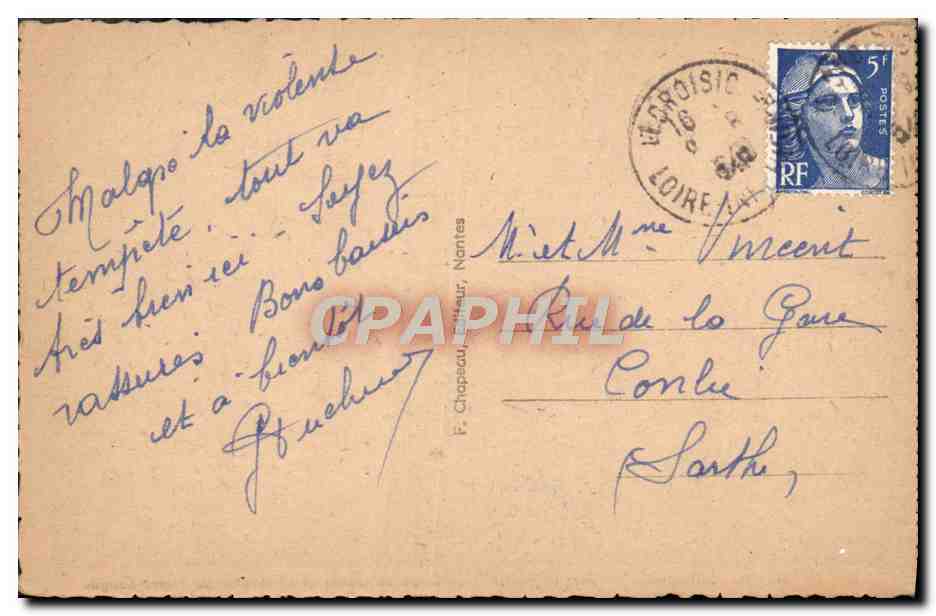 Malgré la violente
tempête, tout va
très bien ici... Soyez
rassurés. Bons baisers
et à bientôt
F. Chapeau, Editeur, Nantes
LE CROISIC
16
LOIRE
5F
POSTES
RF
Mr et Mme Vincent
Rue de la Gare
Conlie
Sarthe,
CPAPHIL